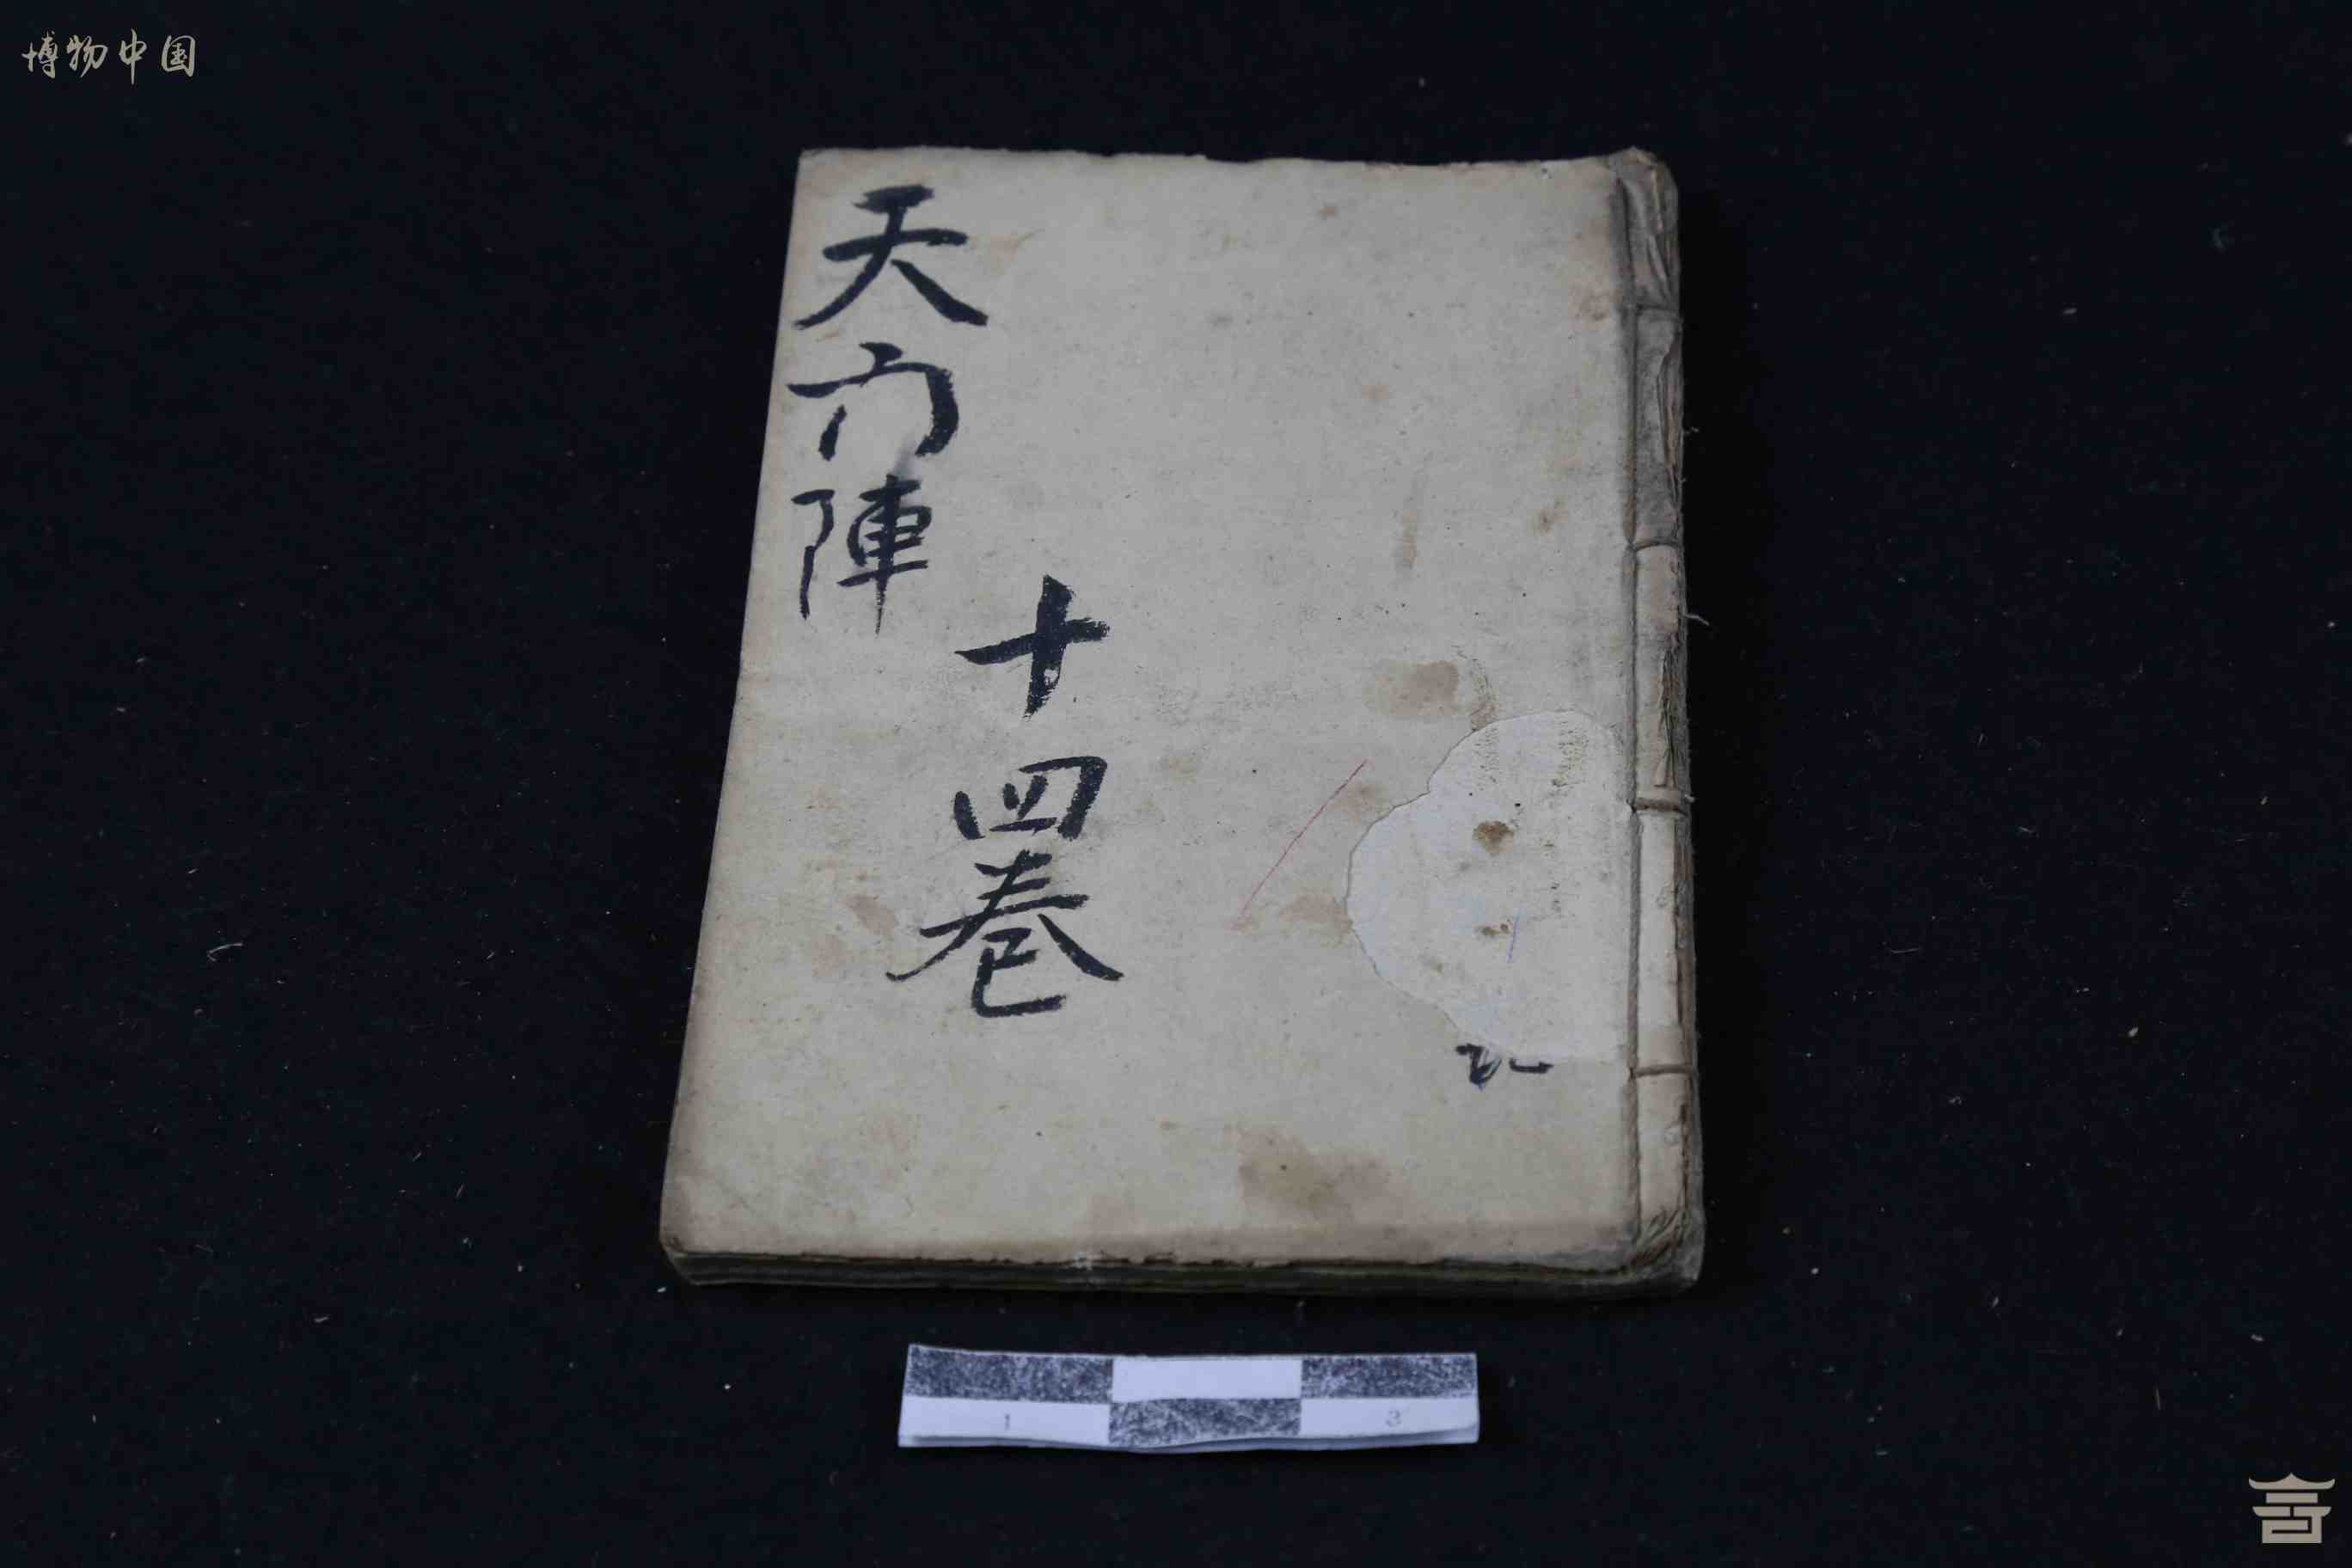 博物中国
天门陣
十四卷
1 3